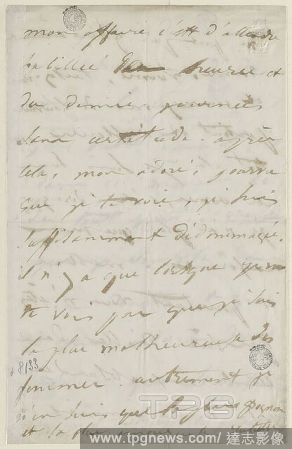 mon affaire c'est d'attendre
habillée heures et
de demie journées
sans certitude. après
cela, mon adoré, pourvu
que je te voie, je suis
suffisamment dédommagée.
il n'y a que lorsque je ne
te vois pas que je suis
la plus malheureuse des
femmes autrement je
n'en suis que la plus
et la plus
8133
TPG
www.tpgnews.com / 達志影像